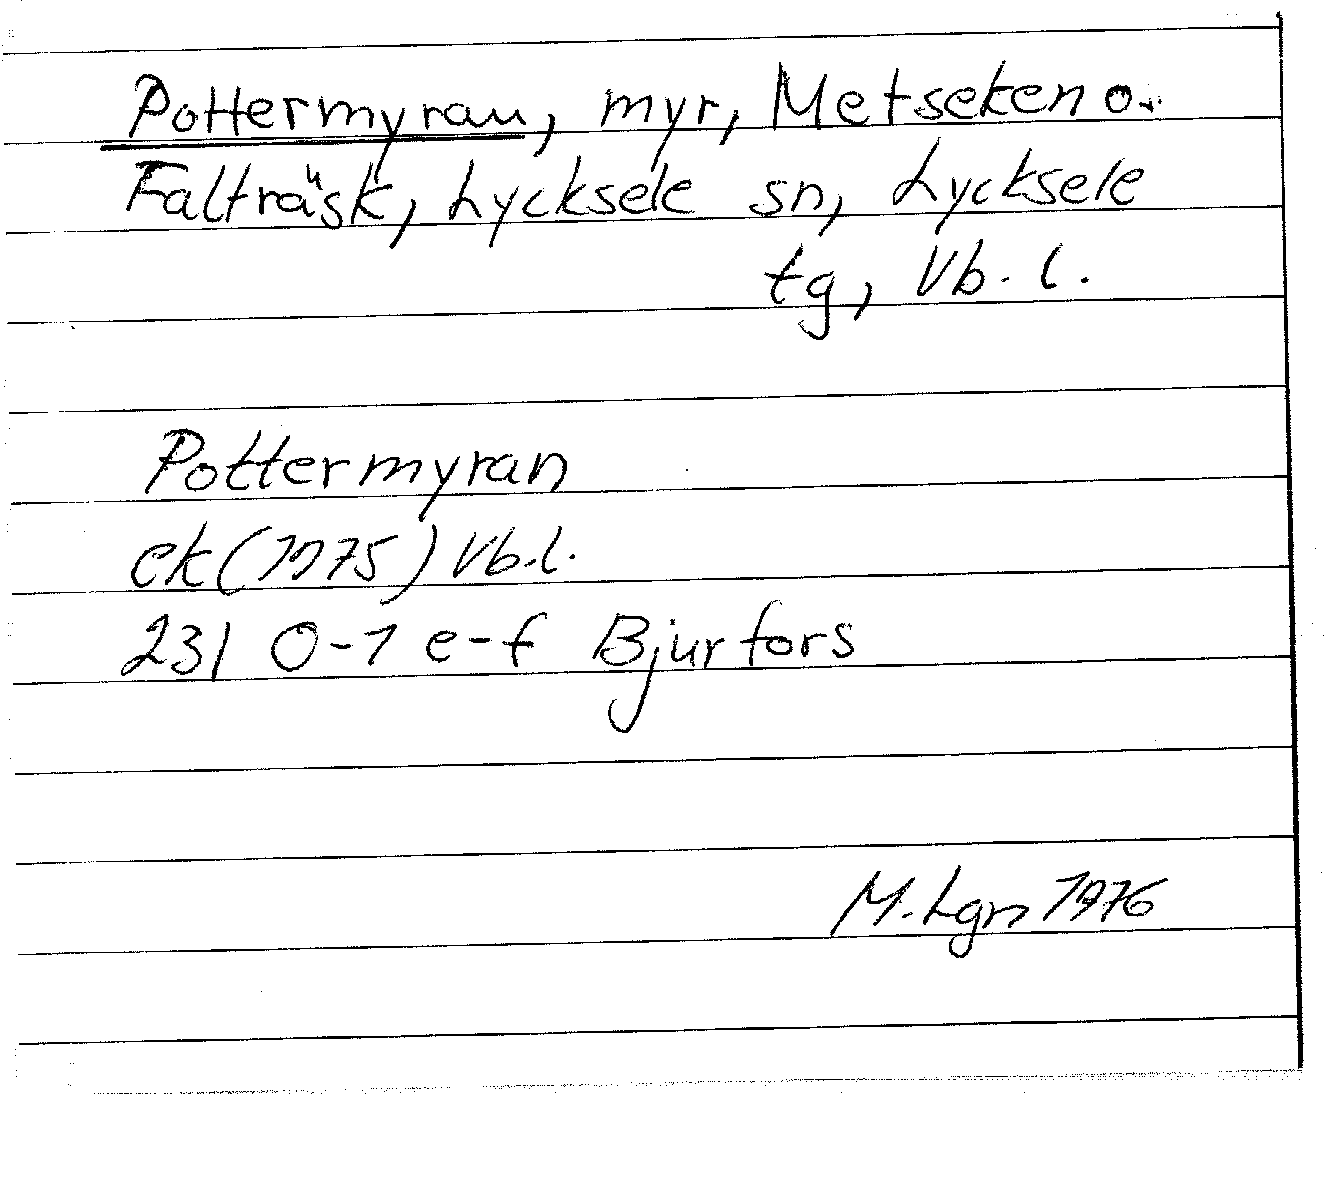 Pottermyran, myr, Metseken o.
Falträsk, Lycksele sn, Lycksele
tg, Vb. l.
Pottermyran
ek (1975) Vb.l.
23I 0-1 e-f Bjurfors
M. Lgn 1976